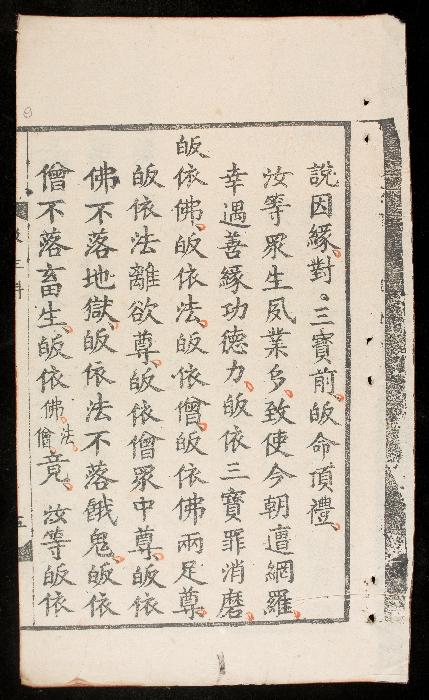 說因緣對三寶前皈命頂禮
汝等眾生夙業多致使今朝遭網羅
幸遇善緣功德力皈依三寶罪消磨
皈依佛皈依法皈依僧皈依佛兩足尊
皈依法離欲尊皈依僧眾中尊皈依
佛不落地獄皈依法不落餓鬼皈依
僧不落畜生皈依佛法僧竟汝等皈依
五